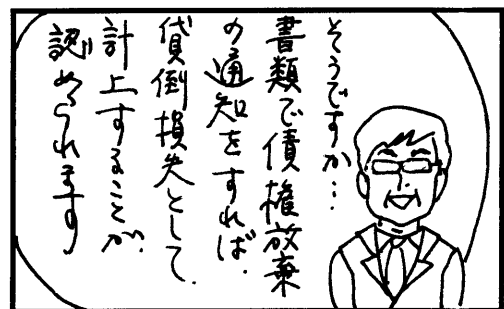 そうですか…
書類で債権放棄
の通知をすれば
貸倒損失として
計上することが
認められます